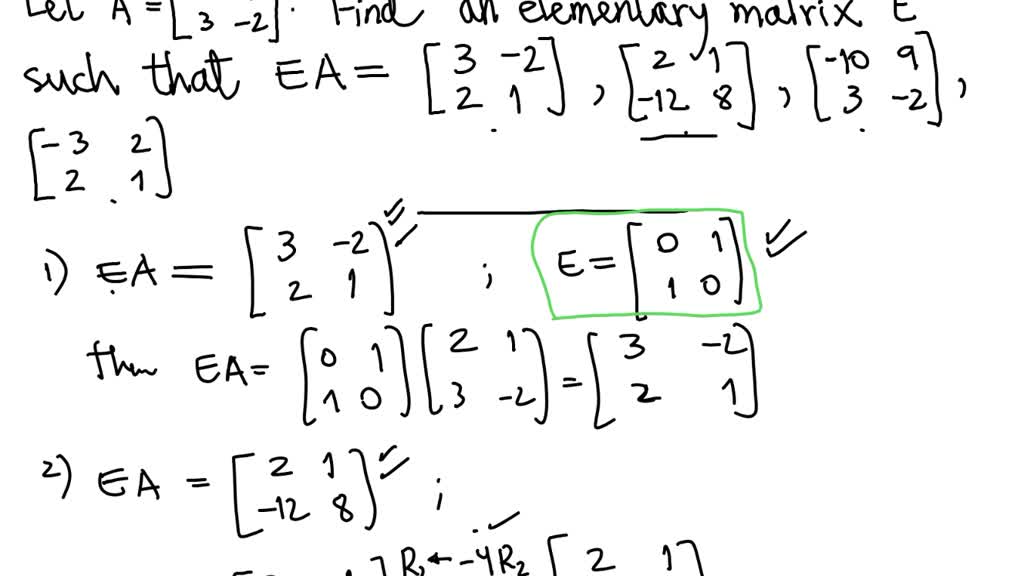 Let A = [ 3 -2 ]. Find an elementary matrix E
such that EA = [ 3 -2 2 1 ] , [ 2 1 -12 8 ] , [ -10 9 3 -2 ] ,
[ -3 2 2 1 ]
1) EA = [ 3 -2 2 1 ] ; E = [ 0 1 1 0 ]
then EA = [ 0 1 1 0 ] [ 2 1 3 -2 ] = [ 3 -2 2 1 ]
2) EA = [ 2 1 -12 8 ] ;
R₁ ← -4R₂ [ 2 1 ]